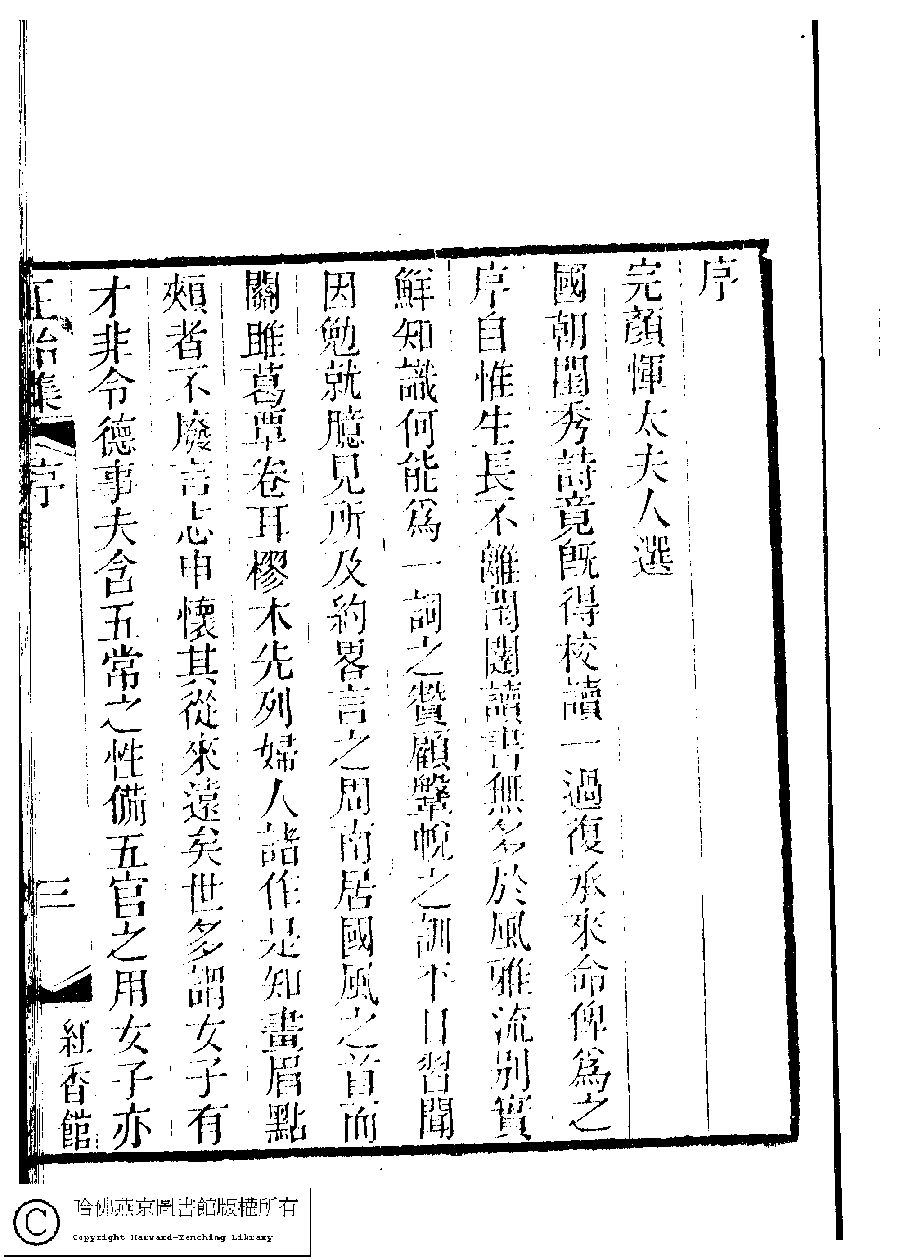 序
完顏惲太夫人選
國朝閨秀詩竟旣得校讀一過復承來命俾爲之
序自惟生長不離閨闥讀書無多於風雅流別實
鮮知識何能爲一詞之贊顧鞶帨之訓平日習聞
因勉就臆見所及約畧言之周南居國風之首而
關雎葛覃卷耳樛木先列婦人諸作是知畫眉點
頰者不廢言志申懷其從來遠矣世多謂女子有
才非令德事夫含五常之性備五官之用女子亦
正始集 序 三 紅香館
哈佛燕京圖書館版權所有
Copyright Harvard-Yenching Library